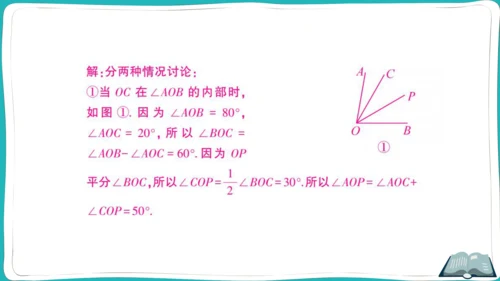 解:分两种情况讨论:
①当 OC 在∠AOB 的内部时,
如图 ①. 因 为 ∠AOB = 80°,
∠AOC = 20°, 所 以 ∠BOC =
∠AOB-∠AOC=60°. 因为 OP
平分∠BOC,所以∠COP=1/2∠BOC=30°.所以∠AOP=∠AOC+
∠COP=50°.
A
C
P
O
B
①